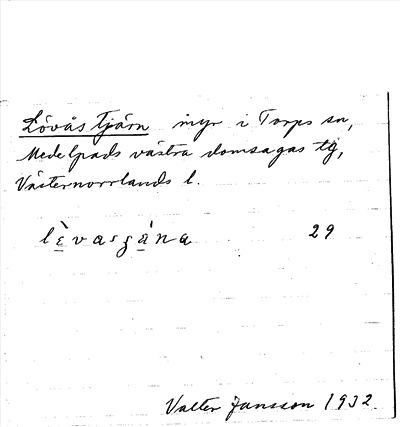 Lövåstjärn myr i Torps sn,
Medelpads västra domsagas tg,
Västernorrlands l.
29
Valter Jansson 1932.